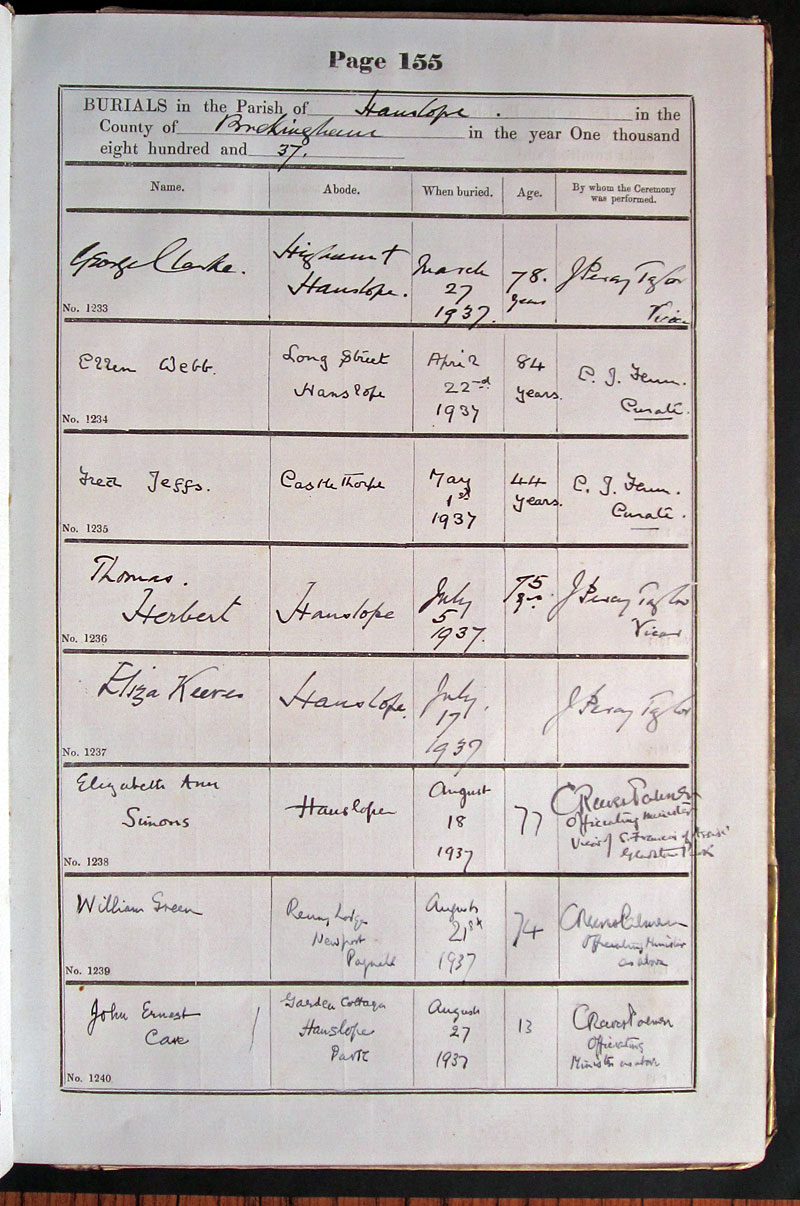 Page 155
BURIALS in the Parish of Hanslope. in the
County of Buckingham in the year One thousand
eight hundred and 37.
Name. Abode. When buried. Age. By whom the Ceremony was performed.
George Clarke.
No. 1233
Highstreet
Hanslope.
March
27
1937.
78.
years
J Percy Taylor
Vicar
Ellen Webb.
No. 1234
Long Street
Hanslope
April
22nd
1937
84
years.
C. J. Fenn.
Curate.
Fred Jeggs.
No. 1235
Castlethorpe
May
1st
1937
44
years.
C. J. Fenn.
Curate.
Thomas.
Herbert
No. 1236
Hanslope
July
5
1937.
75
J Percy Taylor
Vicar
Eliza Keeves
No. 1237
Hanslope.
July.
17
1937
J Percy Taylor
Elizabeth Ann
Simons
No. 1238
Hanslope
August
18
1937
77
Officiating Minister
Vicar of S. Francis of Assisi
Gladstone Park
William Green
No. 1239
Renny Lodge
Newport
Pagnell
August
21st
1937
74
Officiating Minister
as above
John Ernest
Cave
No. 1240
Garden Cottage
Hanslope
Park
August
27
1937
13
Officiating
Minister as above